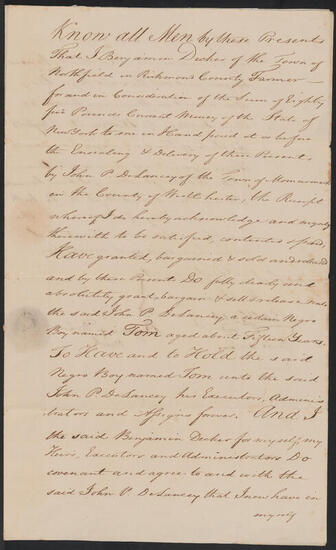 Know all Men by these Presents
That I Benjamin Decker of the Town of
Northfield in Richmond County Farmer
for and in Consideration of the Sum of Eighty
five Pounds Current Money of the State of
New York to me in Hand paid at or before
the Ensealing & Delivery of these Presents
by John P DeLancey of the Town of Mamaroneck
in the County of Westchester, the Receipt
whereof I do hereby acknowledge and myself
therewith to be satisfied, contented & paid
Have granted, bargained & sold and released
and by these Presents Do fully clearly and
absolutely grant, bargain & sell & release unto
the said John P. DeLancey a certain Negro
Boy named Tom aged about Fifteen Years.
To Have and to Hold the said
Negro Boy named Tom unto the said
John P DeLancey his Executors, Adminis
trators and Assigns forever. And I
the said Benjamin Decker for myself, my
Heirs, Executors and Administrators Do
covenant and agree to and with the
said John P. DeLancey that I now have in
myself